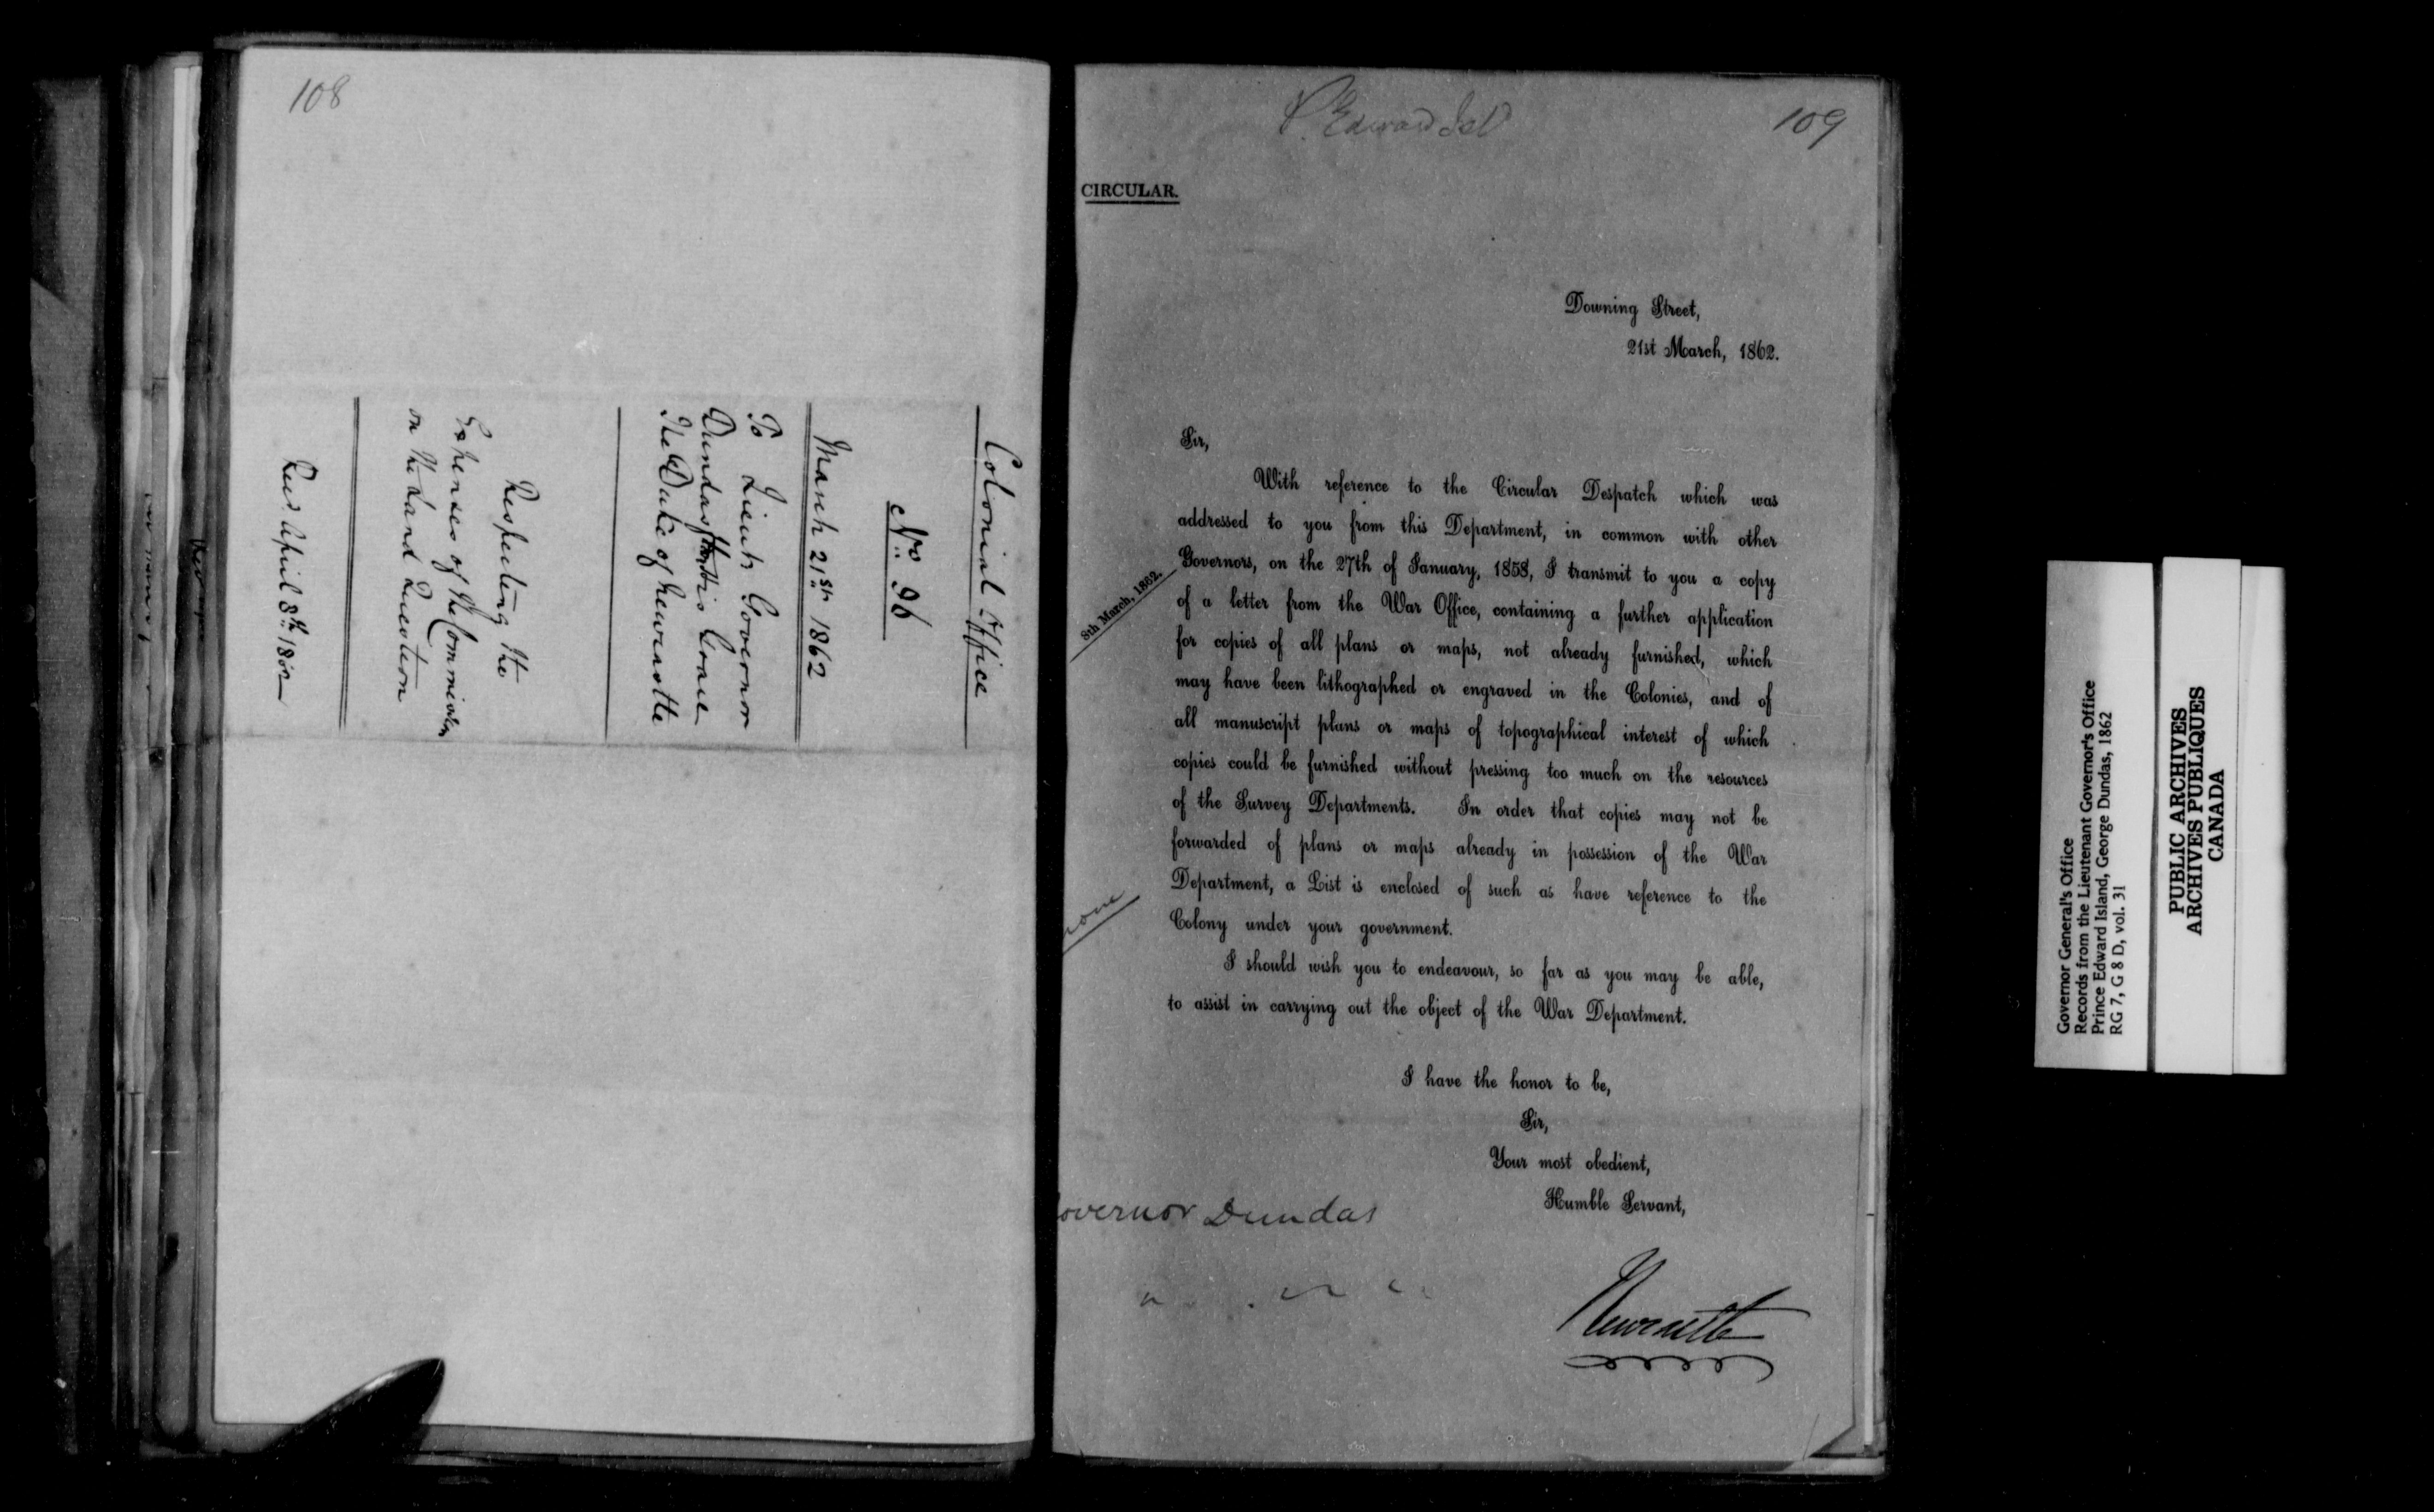 108
Colonial Office
No. 96
March 21st 1862
To Lieut Governor
Dundas from His Grace
The Duke of Newcastle
Respecting the
Expenses of the Commission
on the Land Question
Recd April 8th 1862
109
P. Edward Isd
CIRCULAR.
Downing Street,
21st March, 1862.
Sir,
With reference to the Circular Despatch which was
addressed to you from this Department, in common with other
Governors, on the 27th of January, 1858, I transmit to you a copy
8th March, 1862.
of a letter from the War Office, containing a further application
for copies of all plans or maps, not already furnished, which
may have been lithographed or engraved in the Colonies, and of
all manuscript plans or maps of topographical interest of which
copies could be furnished without pressing too much on the resources
of the Survey Departments. In order that copies may not be
forwarded of plans or maps already in possession of the War
Department, a List is enclosed of such as have reference to the
none
Colony under your government.
I should wish you to endeavour, so far as you may be able,
to assist in carrying out the object of the War Department.
I have the honor to be,
Sir,
Your most obedient,
Humble Servant,
overnor Dundas
Newcastle
Governor General's Office
Records from the Lieutenant Governor's Office
Prince Edward Island, George Dundas, 1862
RG 7, G 8 D, vol. 31
PUBLIC ARCHIVES
ARCHIVES PUBLIQUES
CANADA